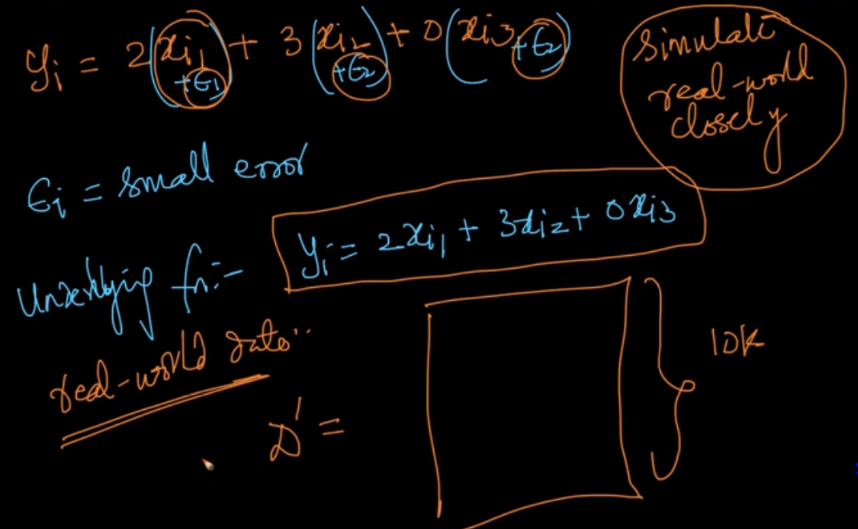 yi = 2(xi1 + ϵ1) + 3(xi2 + ϵ2) + 0(xi3 + ϵ2)
Simulate
real-world
closely
ϵi = small error
Underlying fn:- yi = 2xi1 + 3xi2 + 0xi3
real-world data..
D' =
10k